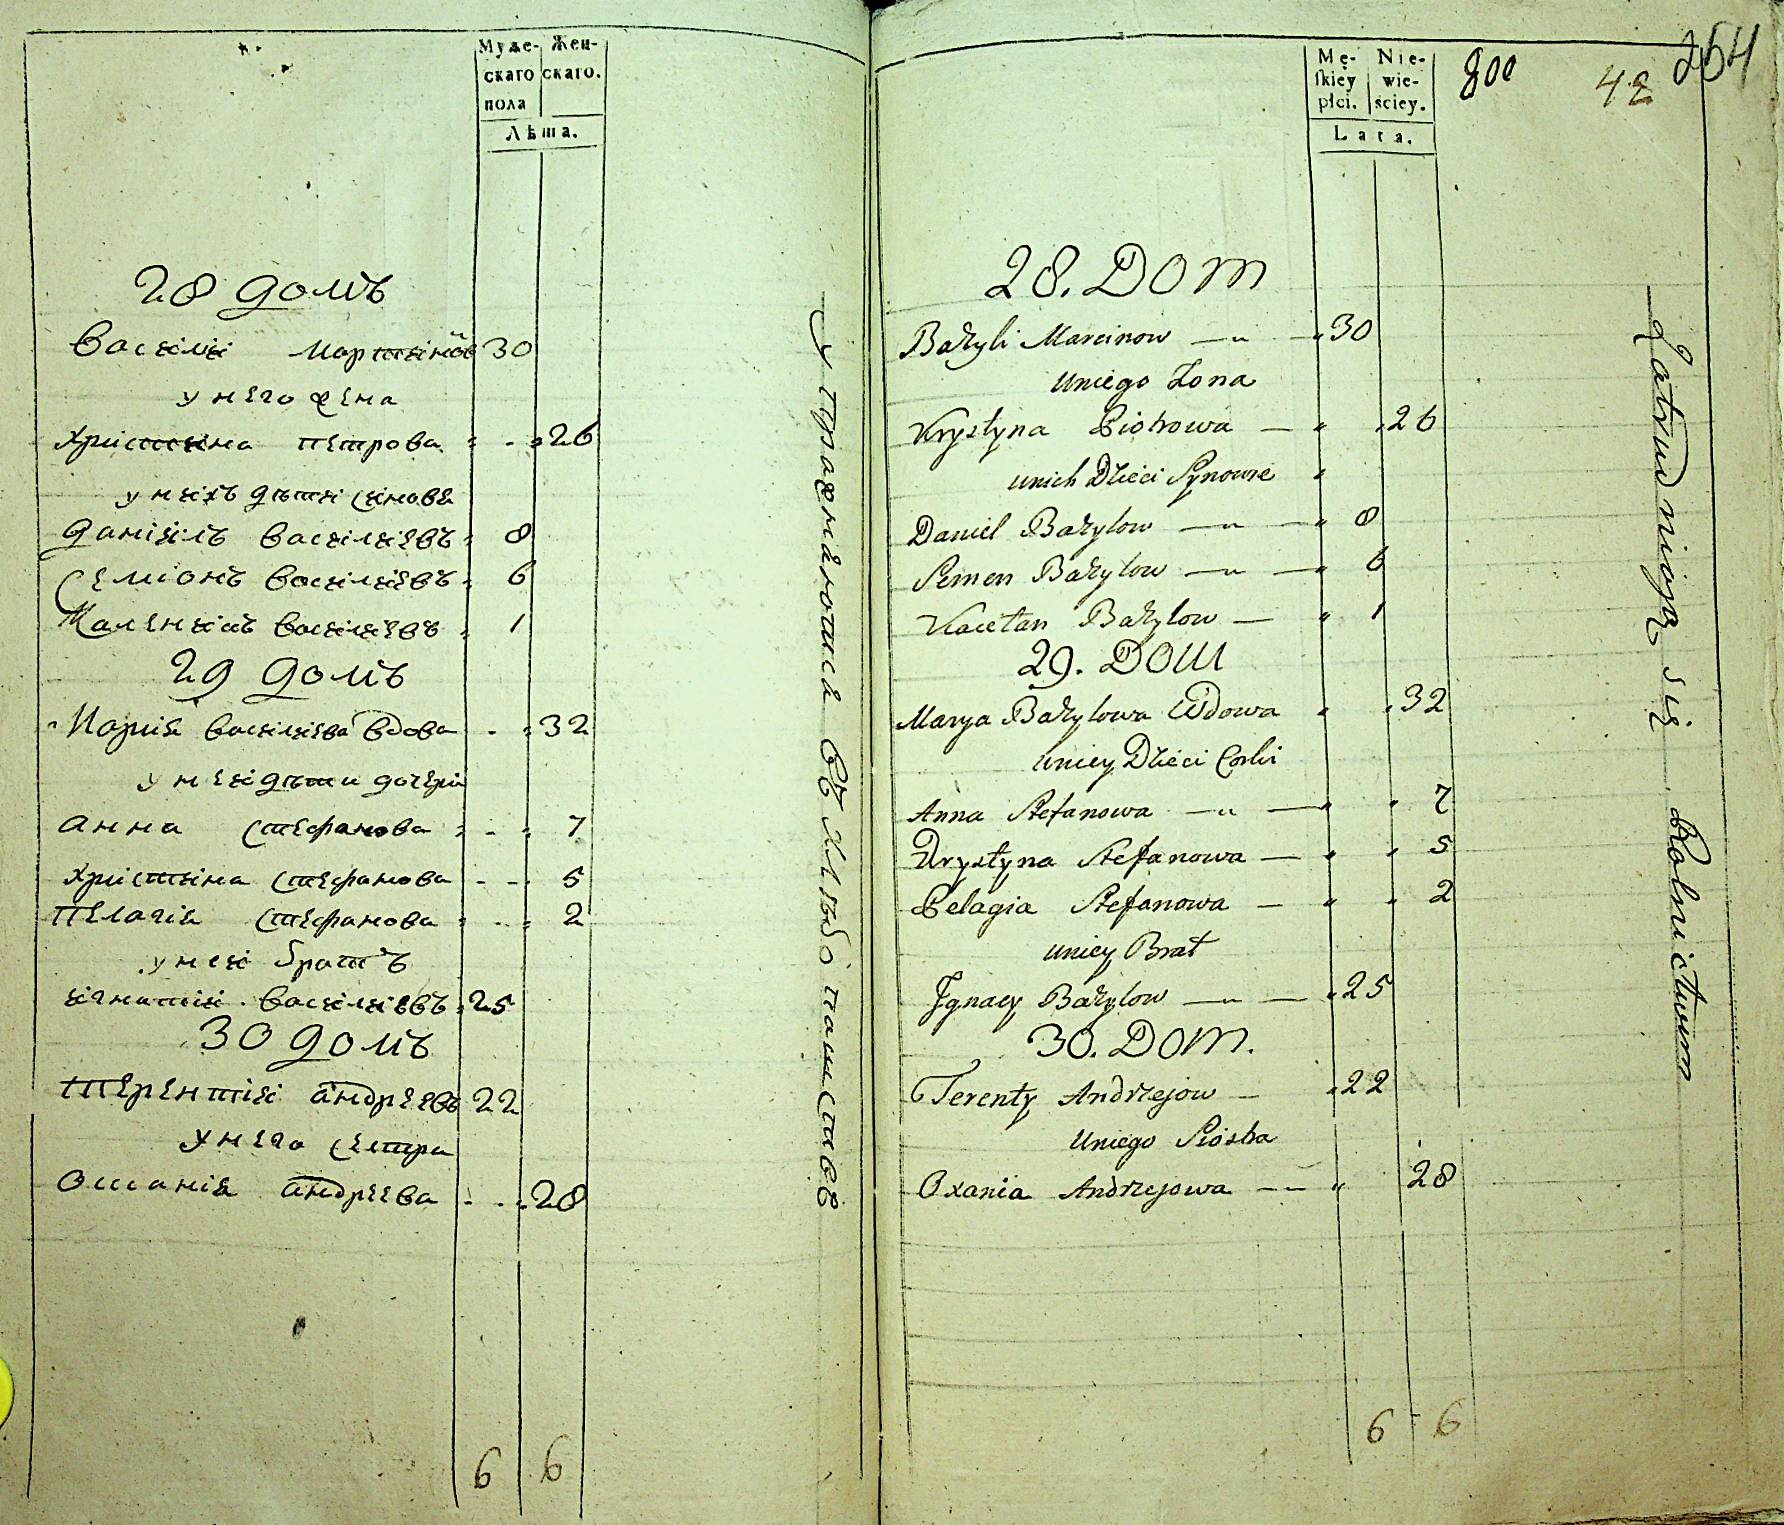 Муже- Жен-
скаго скаго.
пола
Лѣта.
28 домъ
Василий Мартиновъ 30
у него жена
Християна петрова 26
у нихъ дѣти синове
даниилъ Василиевъ 8
Семионъ Василиевъ 6
Василиевъ 1
29 домъ
Мария Василиева Вдова 32
у неи дѣти дочери
анна Стефанова 7
Христина Стефанова 5
пелагия Стефанова 2
у неи братъ
игнатий Василиевъ 25
30 домъ
терентий андреевъ 22
у него сестра
андреева 28
6 6
упражняютса въ хлѣбо пашистве
254
42
800
Mę- Nie-
skiey wie-
płci. sciey.
Lata.
28. Dom
Bazyli Marcinow 30
uniego Zona
Krystyna Piotrowa 26
unich Dzieci Synowie
Daniel Bazylow 8
Semen Bazylow 6
Kacetan Bazylow 1
29. Dom
Marya Bazylowa Wdowa 32
uniey Dzieci Corki
Anna Stefanowa 7
Krystyna Stefanowa 5
Pelagia Stefanowa 2
uniey Brat
Jgnacy Bazylow 25
30. Dom.
Terenty Andrzejow 22
Uniego Siostra
Oxania Andrzejowa 28
6 6
Zatrudniają się Rolnictwem